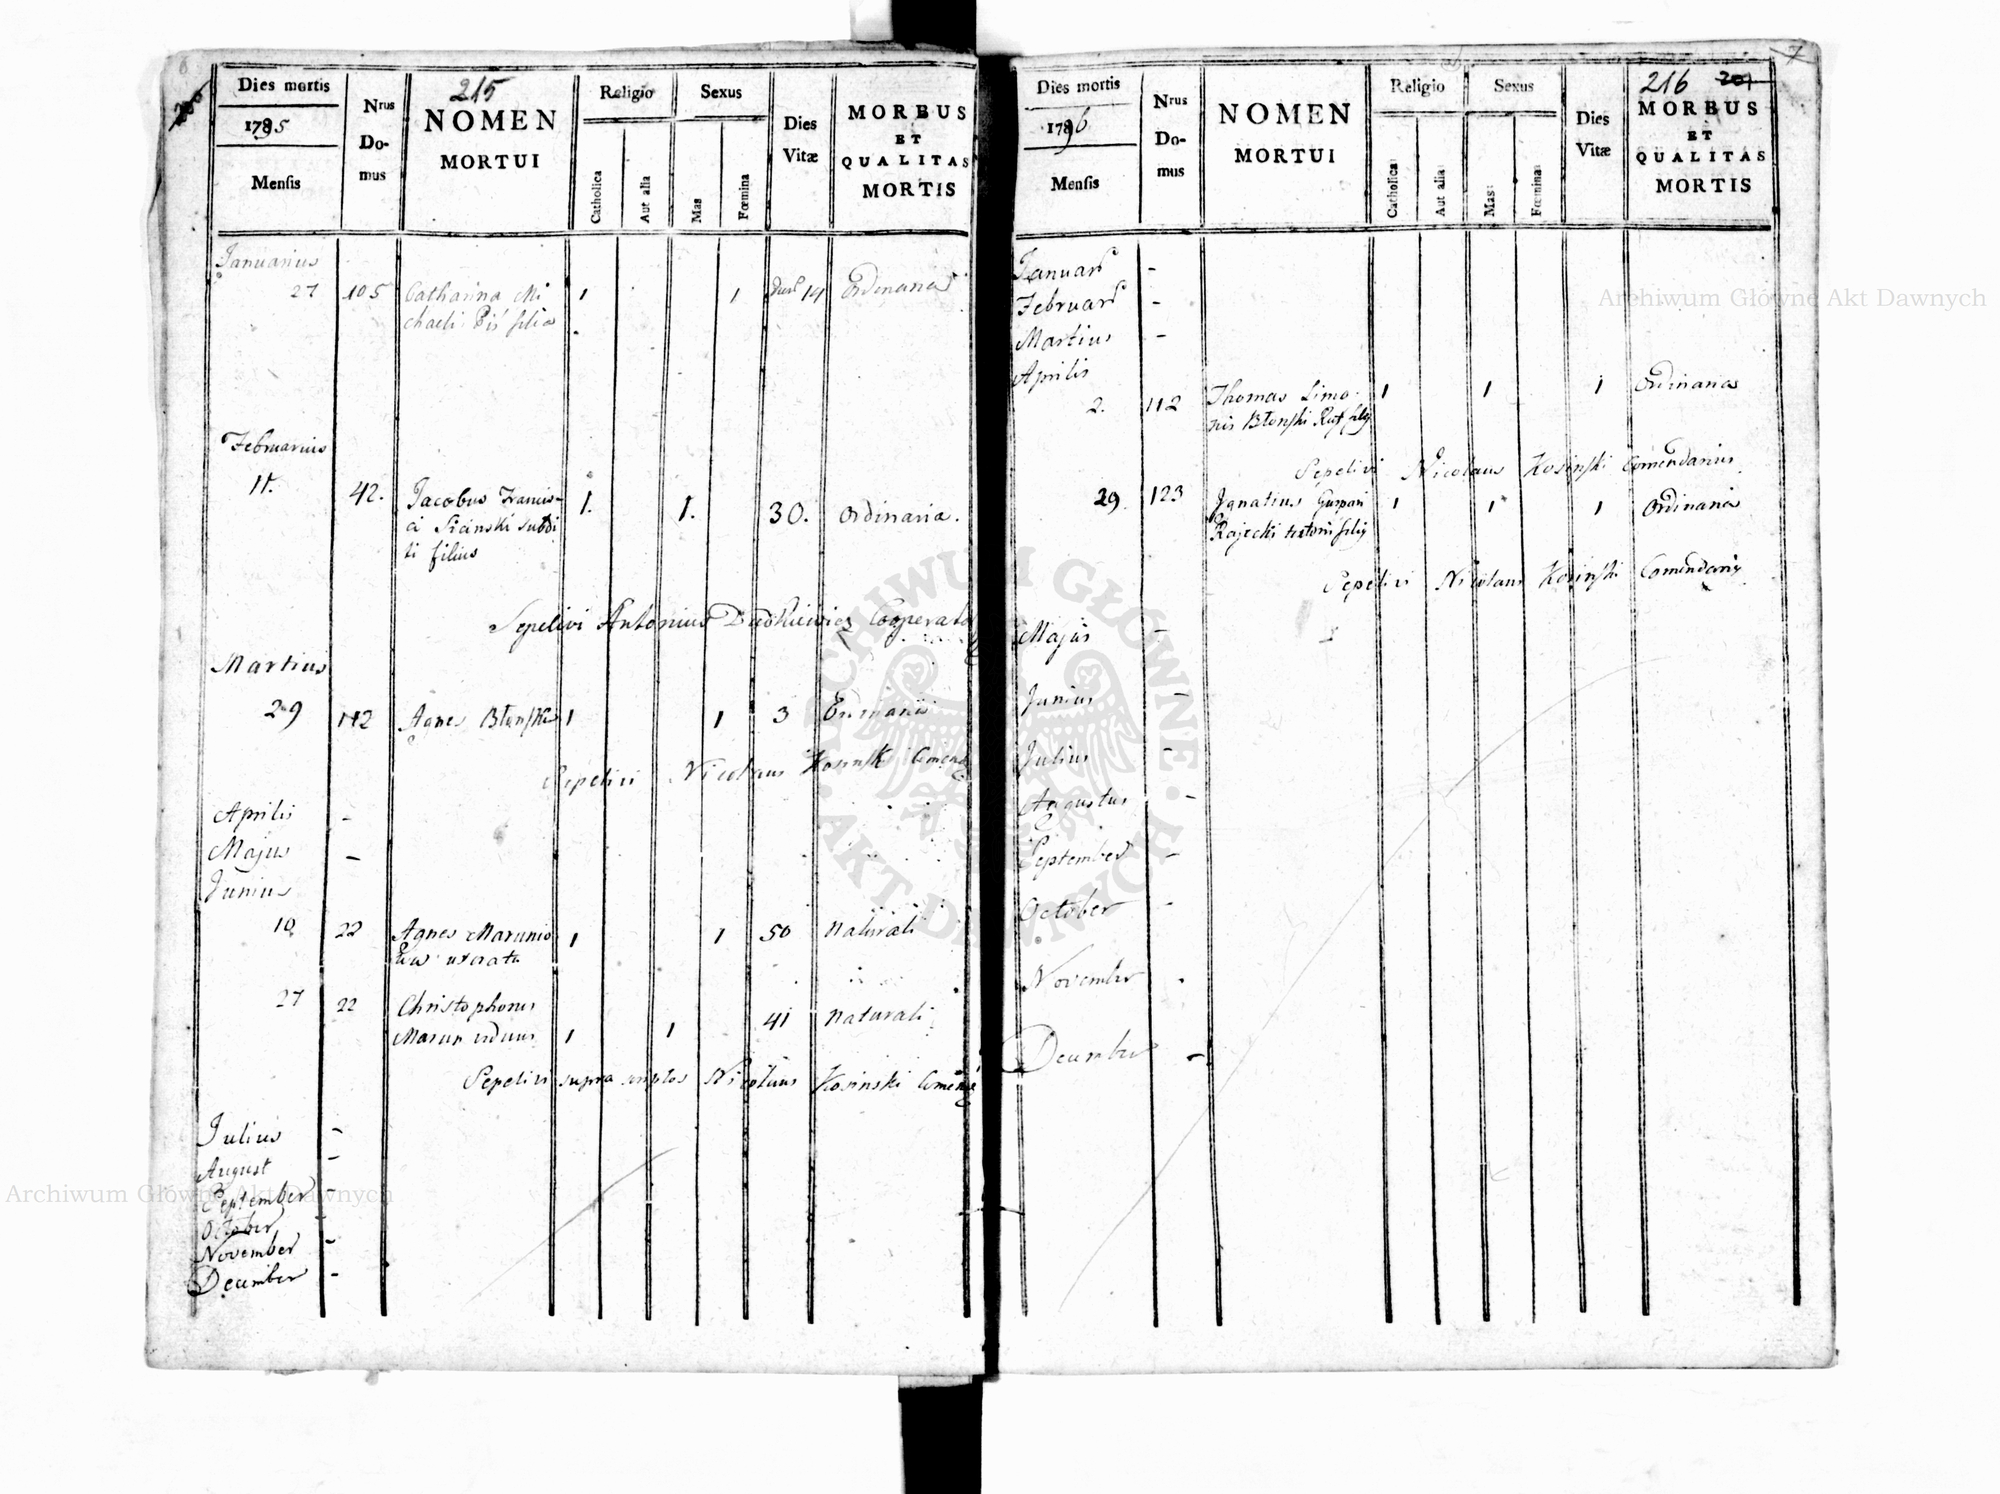 215
Dies mortis
1795
Mensis
Nrus
Do-
mus
NOMEN
MORTUI
Religio
Catholica
Aut alia
Sexus
Mas
Fœmina
Dies
Vitæ
MORBUS
ET
QUALITAS
MORTIS
Januarius
27 105 Catharina Mi 1 1 14 Ordinaria
chaeli filia
Februarius
11. 42. Jacobus Francis- 1. 1. 30. Ordinaria.
ci Sicinski subdi
ti filius
Sepelivi Antonius Dudkiewicz Cooperator
Martius
29 112 Agnes 1 1 3
Sepelivi Nicolaus Kosinski
Aprilis -
Majus -
Junius
10 22 Agnes 1 1 50 Naturali
27 22 Christophorus 41 Naturali
Marun viduus 1 1
Sepelivi supra scriptos Nicolaus Kosinski
Julius -
August -
September -
October -
November -
December -
7
216
Dies mortis
1796
Mensis
Nrus
Do-
mus
NOMEN
MORTUI
Religio
Catholica
Aut alia
Sexus
Mas
Fœmina
Dies
Vitæ
MORBUS
ET
QUALITAS
MORTIS
Januari -
Februari -
Martius -
Aprilis
2. 112 Thomas Simo- 1 1 1 Ordinaria
nis
Sepelivi Nicolaus Kosinski Comendarius
29. 123 Ignatius Gaspari 1 1 1 Ordinaria
Rajecki
Sepelivi Nicolaus Kosinski
Majus -
Junius -
Julius -
Augustus -
September -
October -
November -
December -
Archiwum Główne Akt Dawnych
Archiwum Główne Akt Dawnych
ARCHIWUM GŁÓWNE · AKT DAWNYCH ·